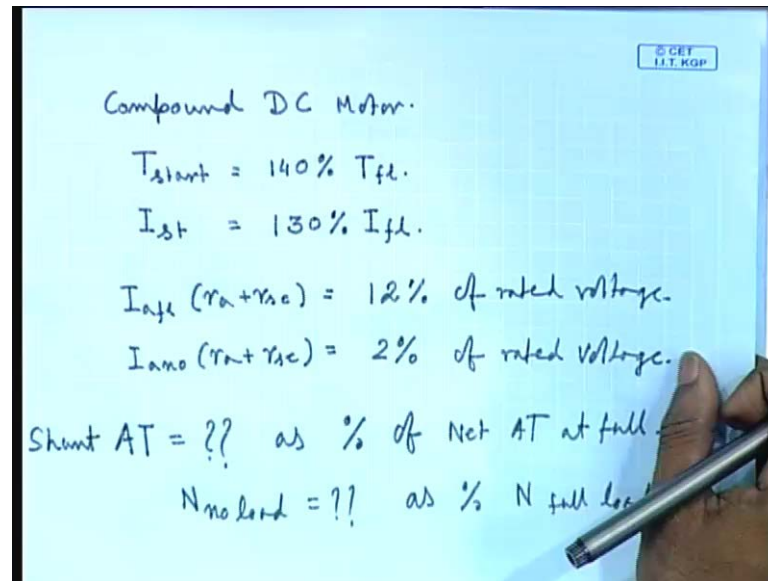 © CET
I.I.T. KGP
Compound DC Motor.
Tstart = 140% Tfl.
Ist = 130% Ifl.
Iafl (ra+rse) = 12% of rated voltage.
Iano (ra+rse) = 2% of rated voltage.
Shunt AT = ?? as % of Net AT at full
Nno load = ?? as % N full